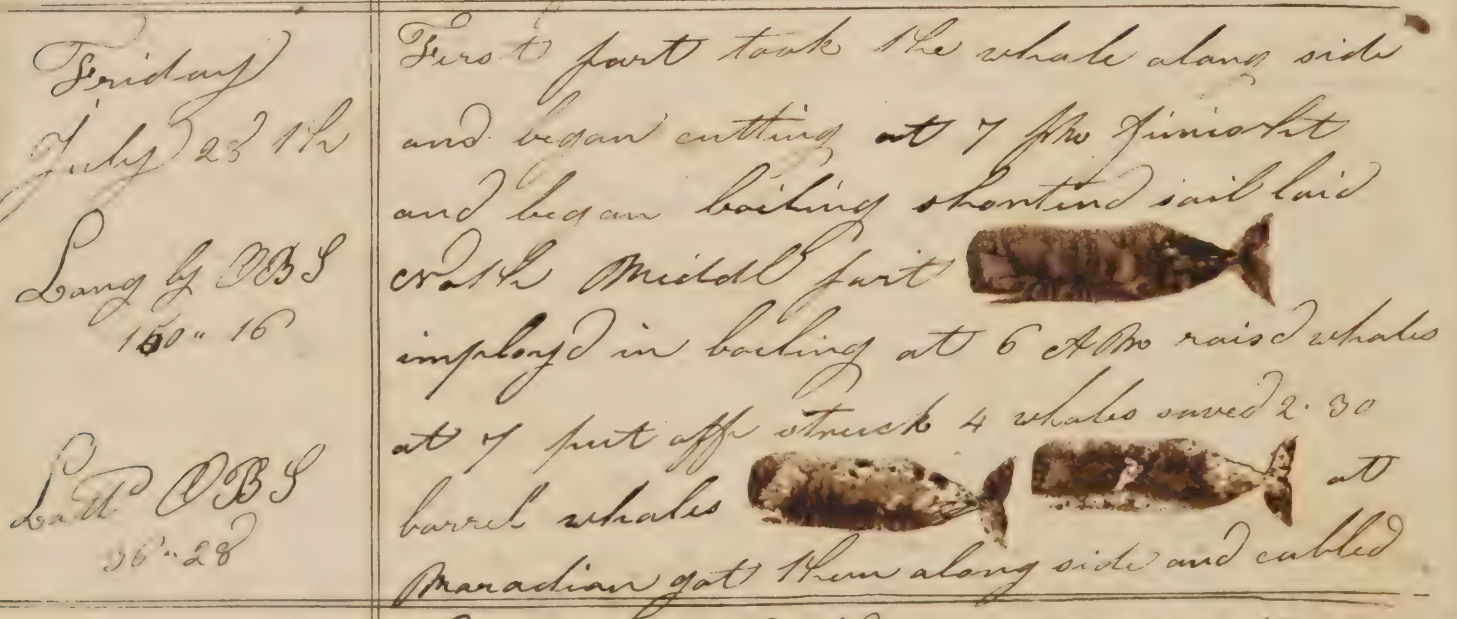 Friday
July 23 th
Long by OBS
150" 16
Latt OBS
36" 28
First part took the whale along side
and began cutting at 7 Pm finisht
and began boiling shortind sail laid
North Middl part
imployd in boiling at 6 A Mo raisd whales
at 7 put off struck 4 whales saved 2. 30
barrel whales at
Maradian got them along side and